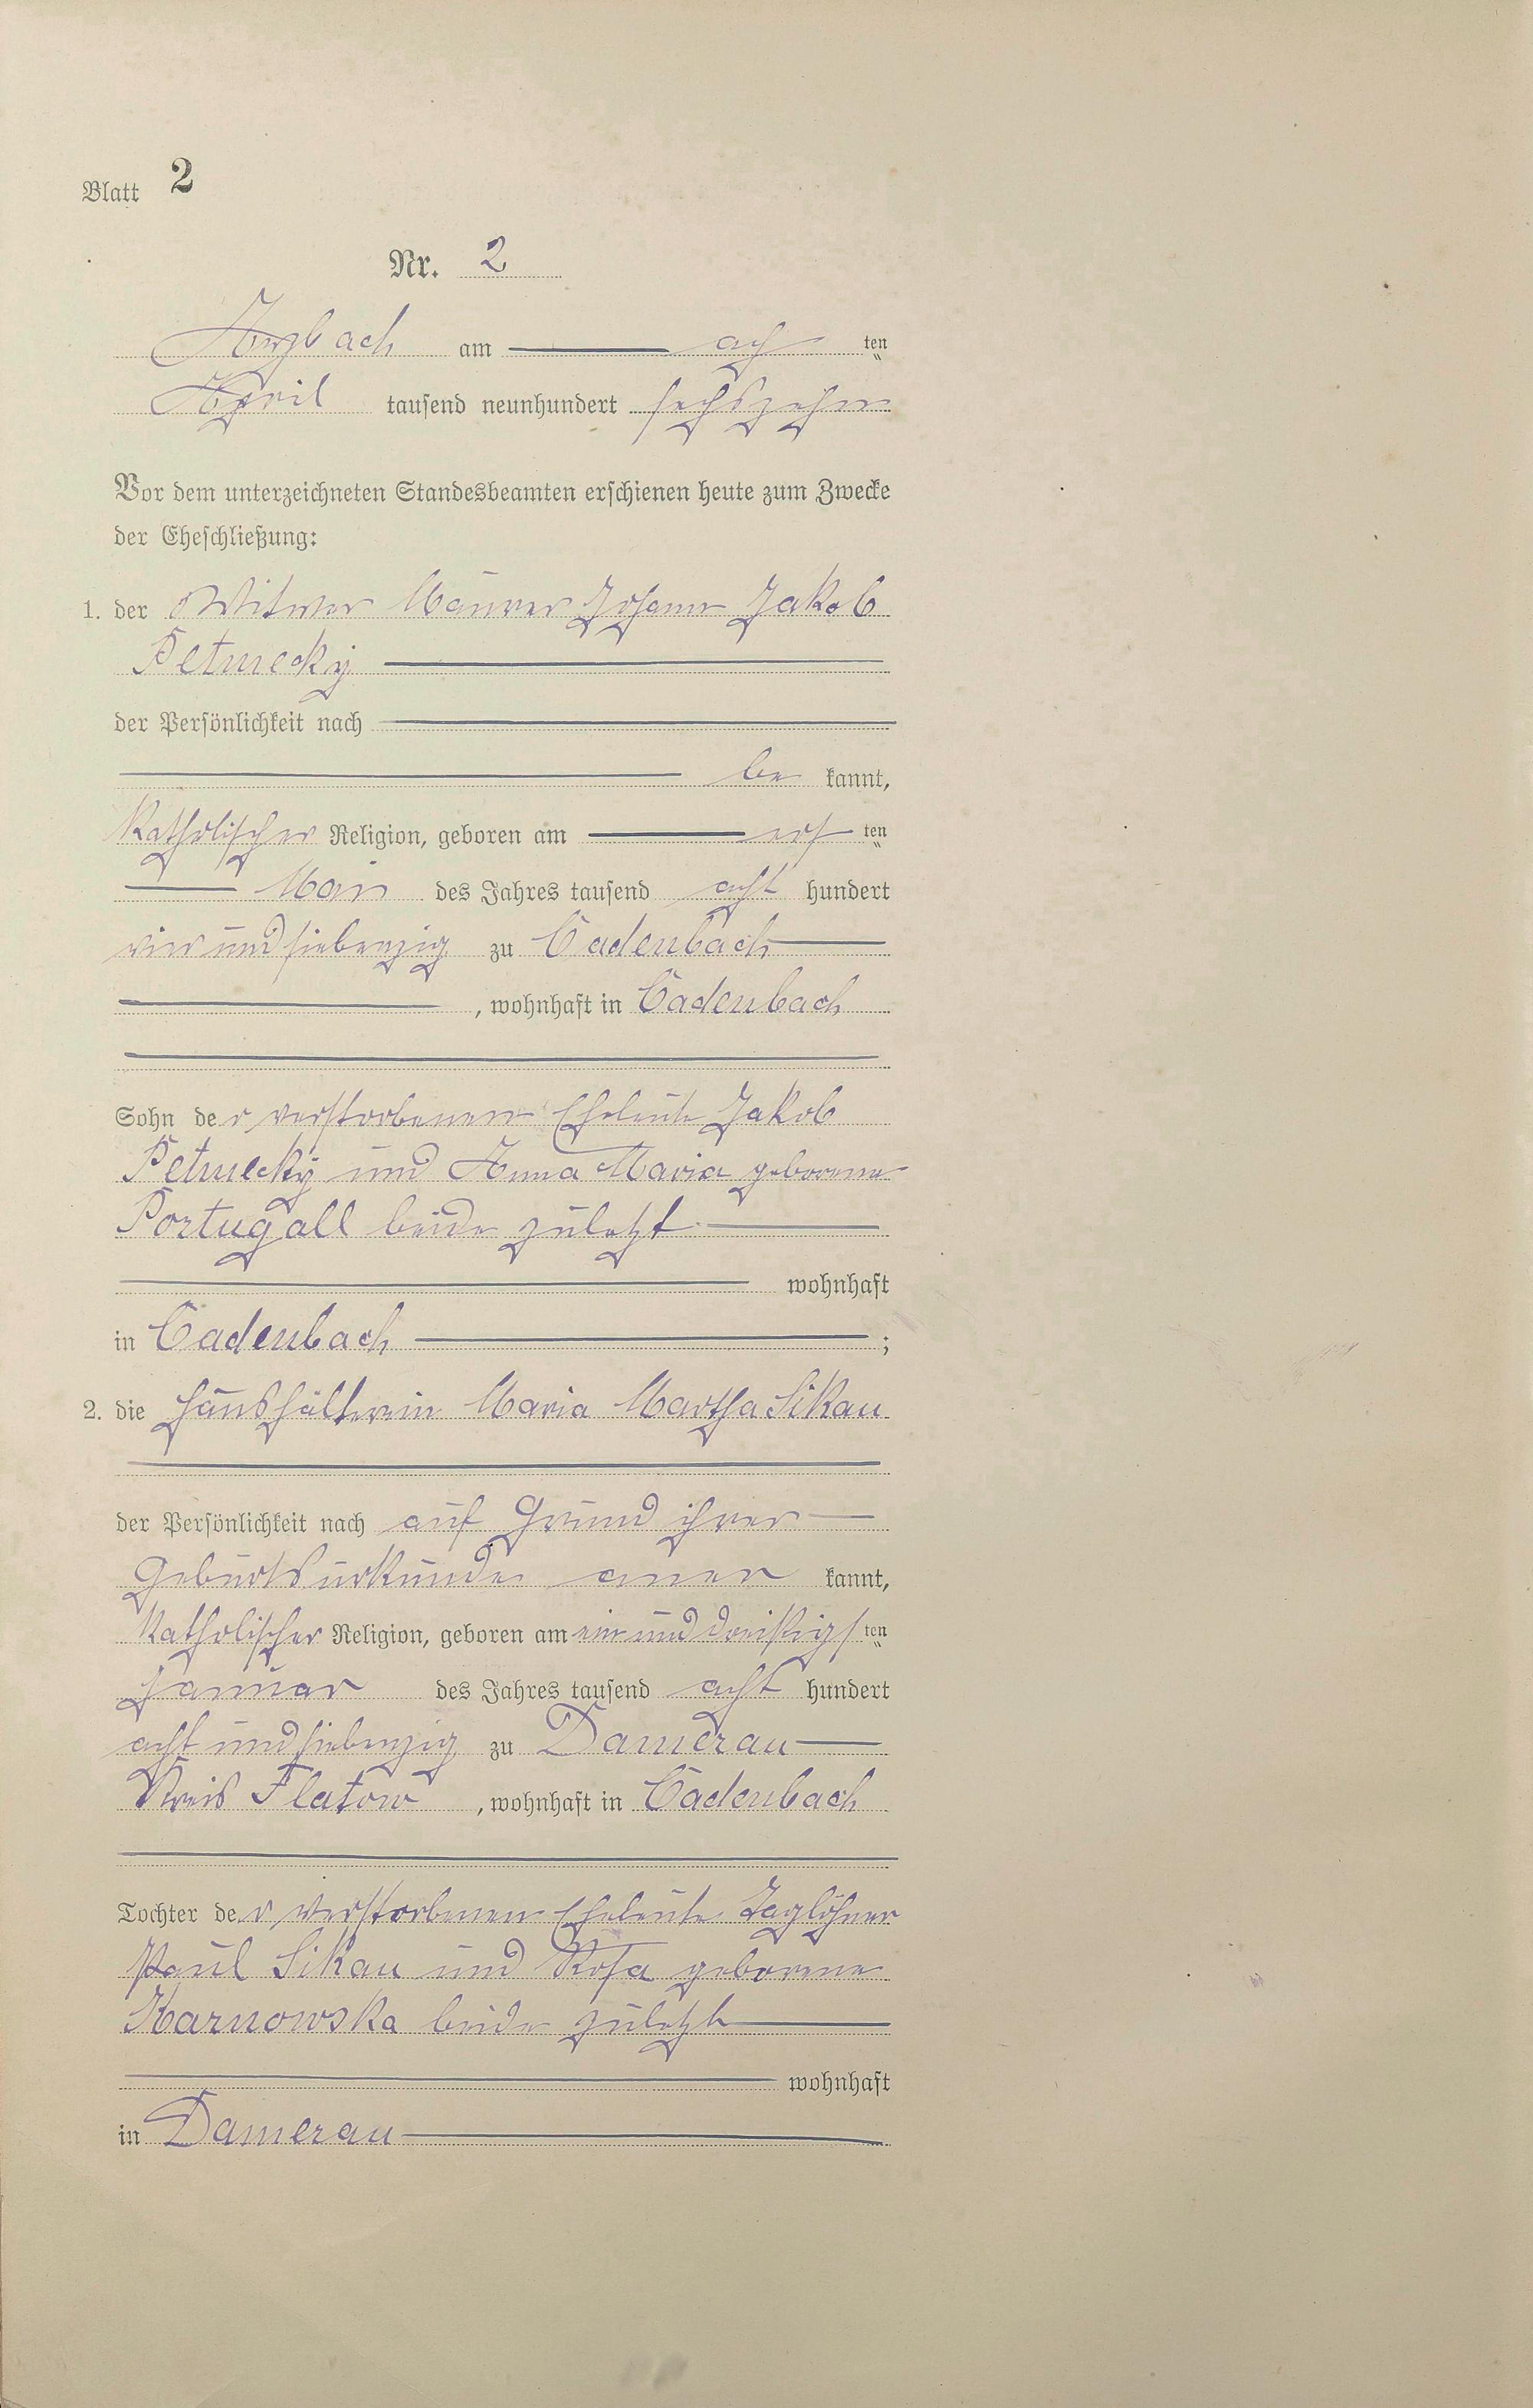 Blatt 2
Nr. 2
Arzbach am ach ten
April tausend neunhundert sechszehn
Vor dem unterzeichneten Standesbeamten erschienen heute zum Zwecke
der Eheschließung:
1. der Witwer Maurer Johann Jakob
Petmecky
der Persönlichkeit nach
be kannt,
Katholischer Religion, geboren am ers ten
Mai des Jahres tausend acht hundert
vier und siebenzig zu Cadenbach
, wohnhaft in Cadenbach
Sohn der verstorbenen Eheleute Jakob
Petmecky und Anna Maria geborene
Portugall beide zuletzt
wohnhaft
in Cadenbach ;
2. die Haushälterin Maria Martha Sikau
der Persönlichkeit nach auf Grund ihrer
Geburtsurkunde aner kannt,
Katholischer Religion, geboren am ein und dreißigs ten
Januar des Jahres tausend acht hundert
acht und siebenzig zu Damerau
Kreis Flatow , wohnhaft in Cadenbach
Tochter der verstorbenen Eheleute Taglöhner
Paul Sikau und Rosa geborene
Karnowska beide zuletzt
wohnhaft
in Damerau